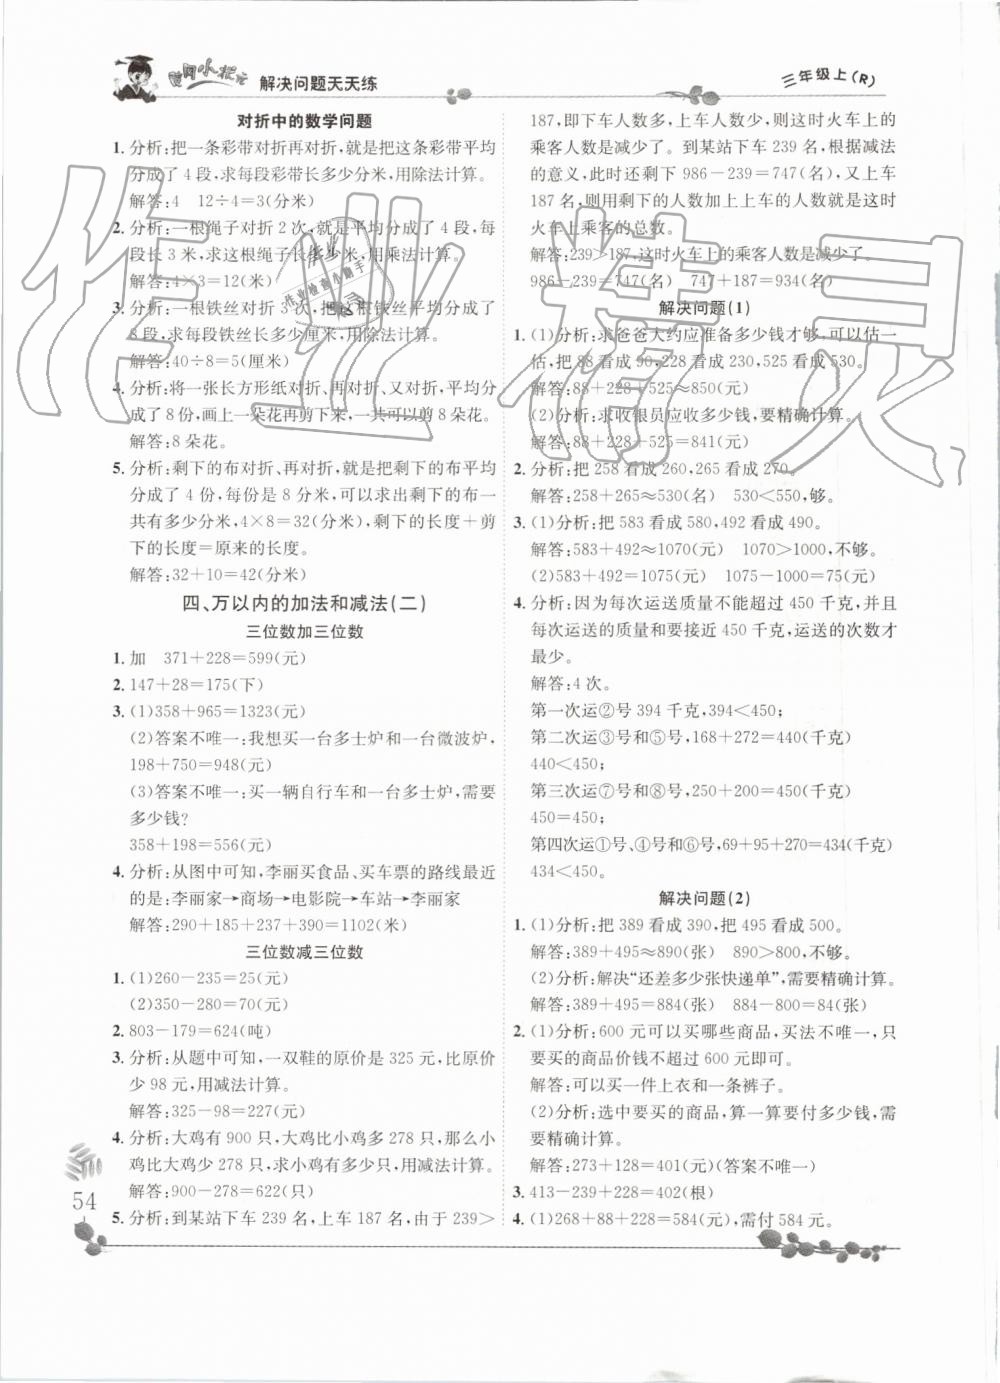 黄冈小状元 解决问题天天练
三年级上(R)
对折中的数学问题
1. 分析:把一条彩带对折再对折,就是把这条彩带平均
分成了 4 段,求每段彩带长多少分米,用除法计算。
解答:4 12÷4=3(分米)
2. 分析:一根绳子对折 2 次,就是平均分成了 4 段,每
段长 3 米,求这根绳子长多少米,用乘法计算。
解答:4×3=12(米)
3. 分析:一根铁丝对折 3 次,把这根铁丝平均分成了
8 段,求每段铁丝长多少厘米,用除法计算。
解答:40÷8=5(厘米)
4. 分析:将一张长方形纸对折、再对折、又对折,平均分
成了 8 份,画上一朵花再剪下来,一共可以剪 8 朵花。
解答:8 朵花。
5. 分析:剩下的布对折、再对折,就是把剩下的布平均
分成了 4 份,每份是 8 分米,可以求出剩下的布一
共有多少分米,4×8=32(分米),剩下的长度+剪
下的长度=原来的长度。
解答:32+10=42(分米)
四、万以内的加法和减法(二)
三位数加三位数
1. 加 371+228=599(元)
2. 147+28=175(下)
3. (1)358+965=1323(元)
(2)答案不唯一:我想买一台多士炉和一台微波炉,
198+750=948(元)
(3)答案不唯一:买一辆自行车和一台多士炉,需要
多少钱?
358+198=556(元)
4. 分析:从图中可知,李丽买食品、买车票的路线最近
的是:李丽家→商场→电影院→车站→李丽家
解答:290+185+237+390=1102(米)
三位数减三位数
1. (1)260-235=25(元)
(2)350-280=70(元)
2. 803-179=624(吨)
3. 分析:从题中可知,一双鞋的原价是 325 元,比原价
少 98 元,用减法计算。
解答:325-98=227(元)
4. 分析:大鸡有 900 只,大鸡比小鸡多 278 只,那么小
鸡比大鸡少 278 只,求小鸡有多少只,用减法计算。
解答:900-278=622(只)
5. 分析:到某站下车 239 名,上车 187 名,由于 239>
187,即下车人数多,上车人数少,则这时火车上的
乘客人数是减少了。到某站下车 239 名,根据减法
的意义,此时还剩下 986-239=747(名),又上车
187 名,则用剩下的人数加上上车的人数就是这时
火车上乘客的总数。
解答:239>187,这时火车上的乘客人数是减少了。
986-239=747(名) 747+187=934(名)
解决问题(1)
1. (1)分析:求爸爸大约应准备多少钱才够,可以估一
估,把 88 看成 90,228 看成 230,525 看成 530。
解答:88+228+525≈850(元)
(2)分析:求收银员应收多少钱,要精确计算。
解答:88+228+525=841(元)
2. 分析:把 258 看成 260,265 看成 270。
解答:258+265≈530(名) 530<550,够。
3. (1)分析:把 583 看成 580,492 看成 490。
解答:583+492≈1070(元) 1070>1000,不够。
(2)583+492=1075(元) 1075-1000=75(元)
4. 分析:因为每次运送质量不能超过 450 千克,并且
每次运送的质量和要接近 450 千克,运送的次数才
最少。
解答:4 次。
第一次运②号 394 千克,394<450;
第二次运③号和⑤号,168+272=440(千克)
440<450;
第三次运⑦号和⑧号,250+200=450(千克)
450=450;
第四次运①号、④号和⑥号,69+95+270=434(千克)
434<450。
解决问题(2)
1. (1)分析:把 389 看成 390,把 495 看成 500。
解答:389+495≈890(张) 890>800,不够。
(2)分析:解决“还差多少张快递单”,需要精确计算。
解答:389+495=884(张) 884-800=84(张)
2. (1)分析:600 元可以买哪些商品,买法不唯一,只
要买的商品价钱不超过 600 元即可。
解答:可以买一件上衣和一条裤子。
(2)分析:选中要买的商品,算一算要付多少钱,需
要精确计算。
解答:273+128=401(元)(答案不唯一)
3. 413-239+228=402(根)
4. (1)268+88+228=584(元),需付 584 元。
54
作业精灵
作业检查小助手